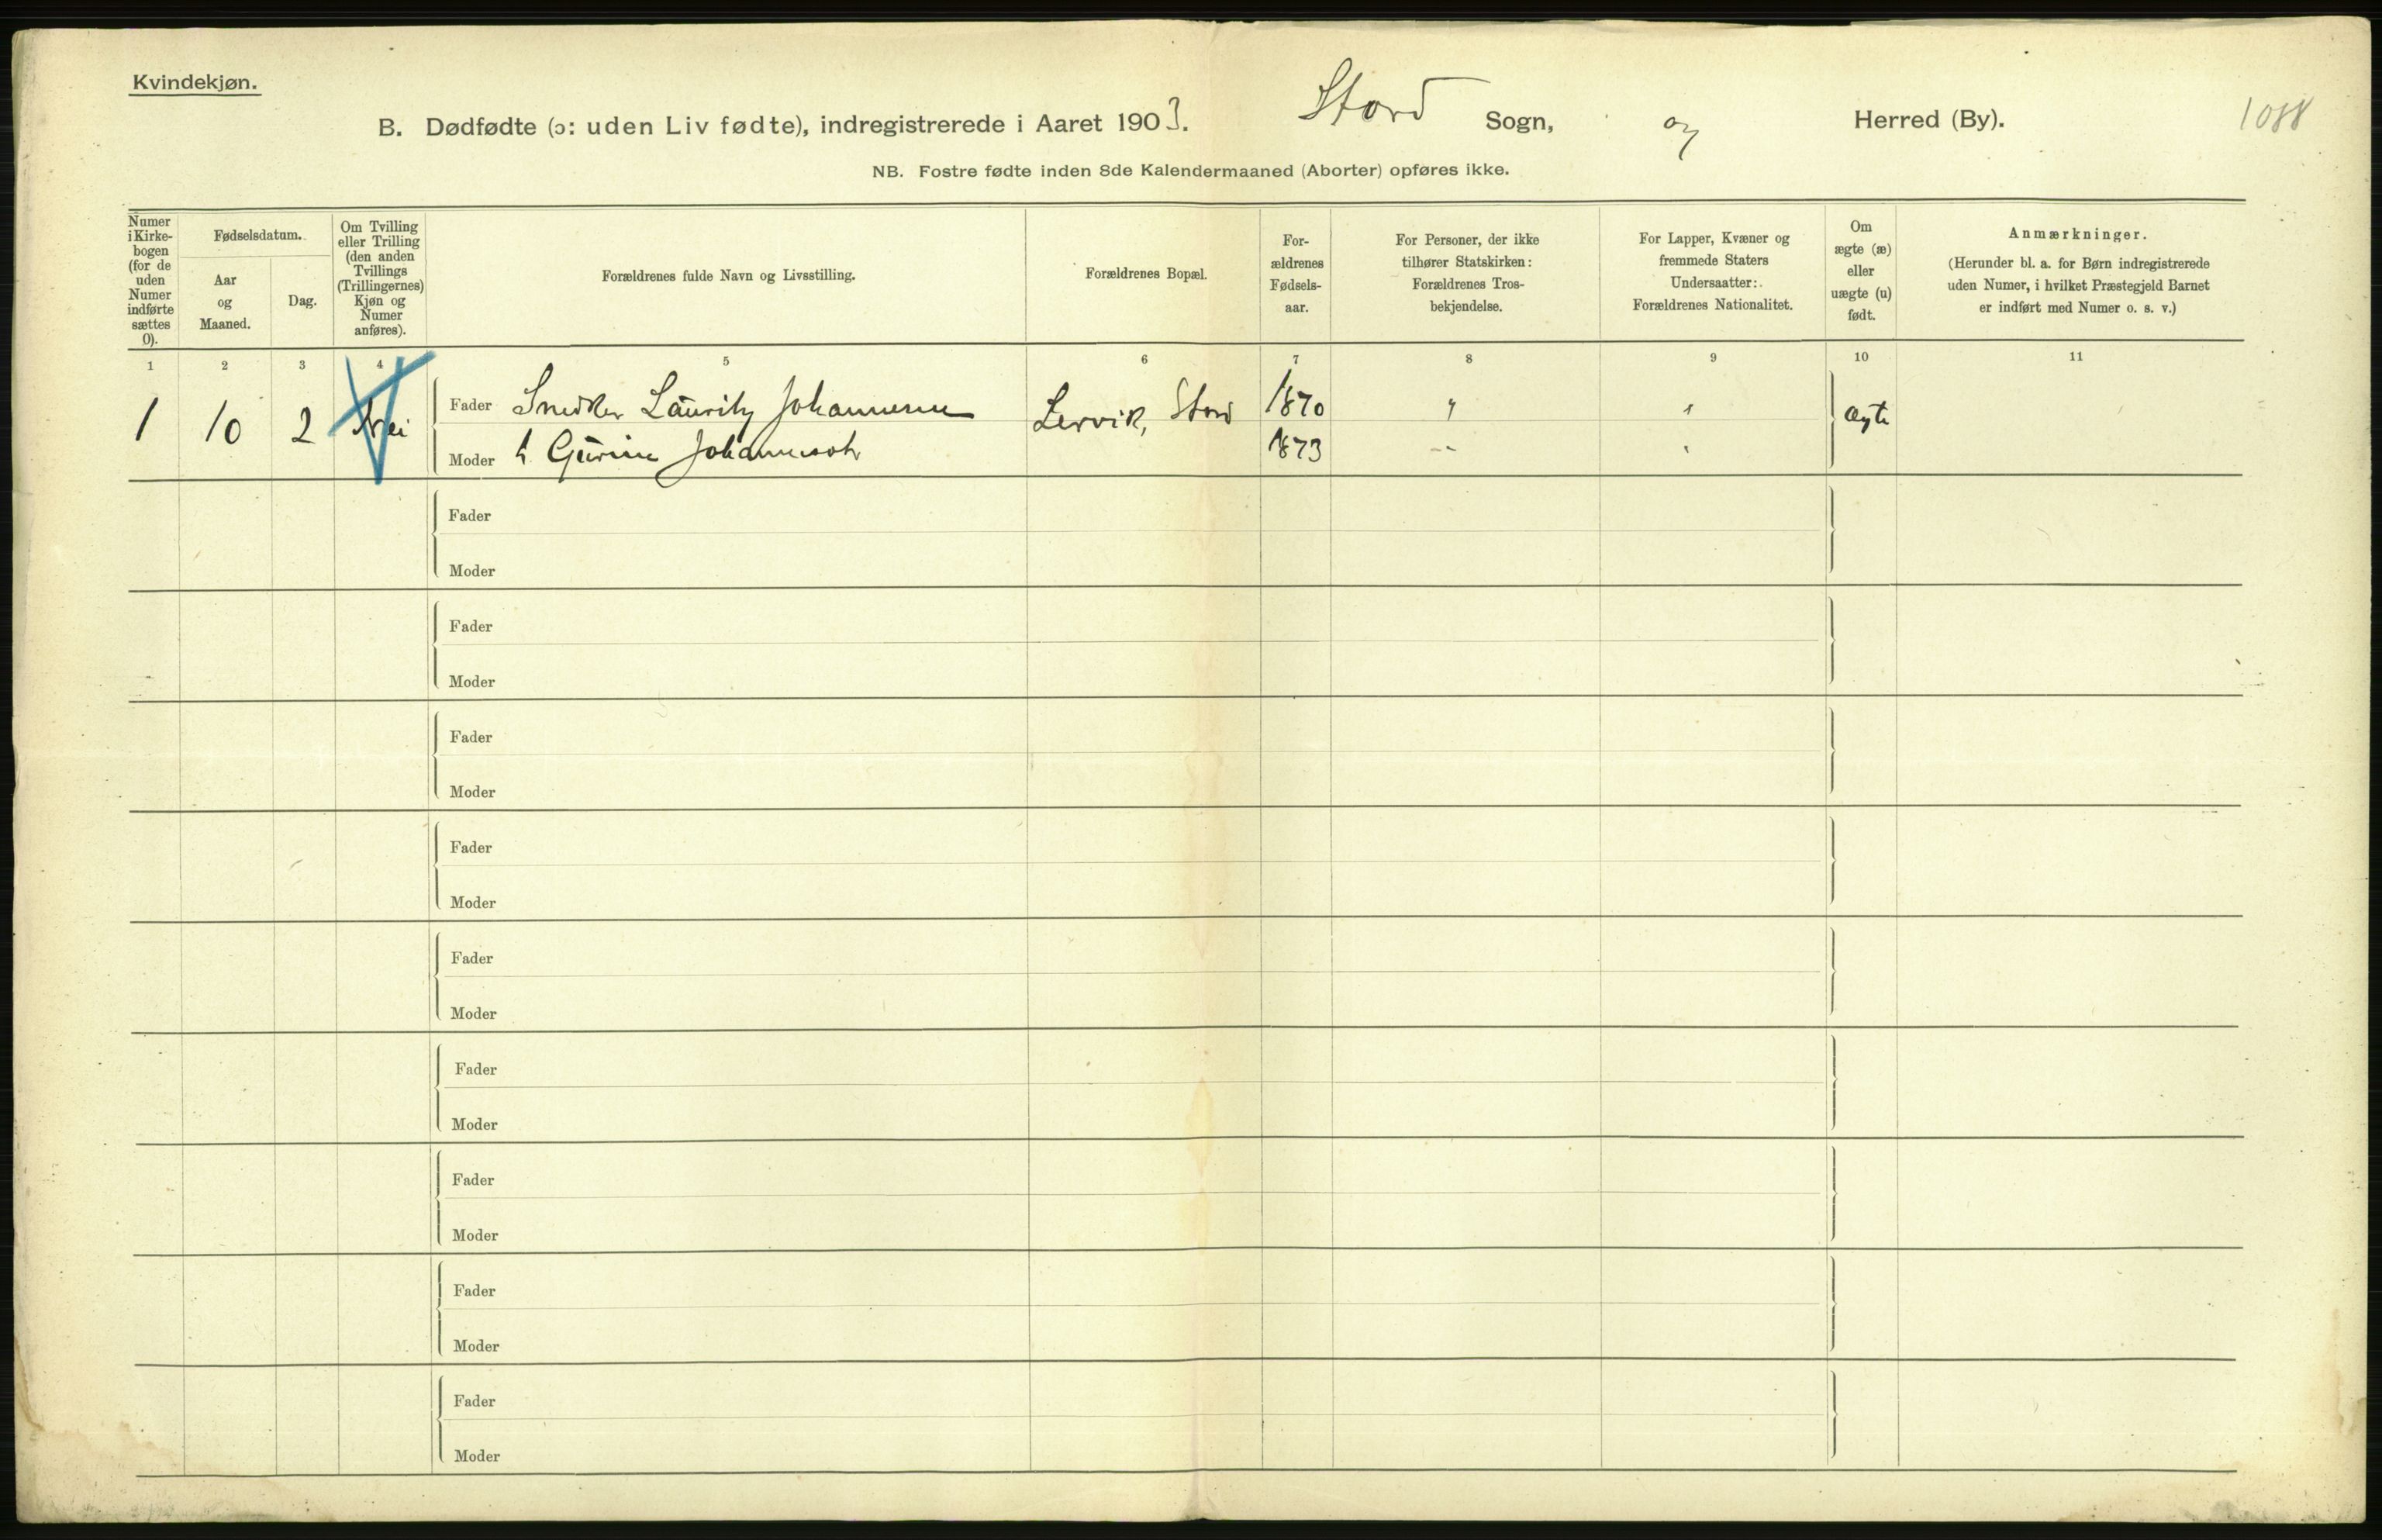 Kvindekjøn.
B. Dødfødte (ɔ: uden Liv fødte), indregistrerede i Aaret 1903. Stord Sogn, og Herred (By).
NB. Fostre fødte inden 8de Kalendermaaned (Aborter) opføres ikke.
Numer i Kirke-bogen (for de uden Numer indførte sættes 0).
Fødselsdatum.
Aar og Maaned.
Dag.
Om Tvilling eller Trilling (den anden Tvillings (Trillingernes) Kjøn og Numer anføres).
Forældrenes fulde Navn og Livsstilling.
Forældrenes Bopæl.
For-ældrenes Fødsels-aar.
For Personer, der ikke tilhører Statskirken: Forældrenes Tros-bekjendelse.
For Lapper, Kvæner og fremmede Staters Undersaatter: Forældrenes Nationalitet.
Om ægte (æ) eller uægte (u) født.
Anmærkninger.
(Herunder bl. a. for Børn indregistrerede uden Numer, i hvilket Præstegjeld Barnet er indført med Numer o. s. v.)
1 2 3 4 5 6 7 8 9 10 11
1 10 2 Nei Fader Snedker Lauritz Johannesen Lervik, Stord 1870 " " ægte
Moder h. Gurine Johannesdtr 1873 -"- "
Fader
Moder
Fader
Moder
Fader
Moder
Fader
Moder
Fader
Moder
Fader
Moder
Fader
Moder
Fader
Moder
Fader
Moder